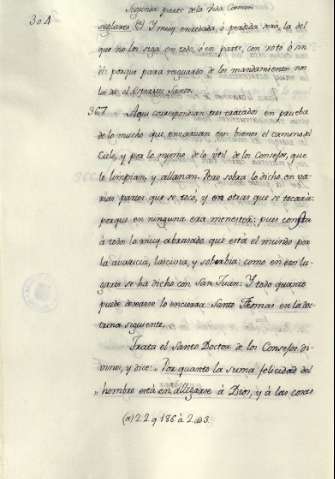 304
Segunda parte de la Vida Comun
seglares. Y muy enredada, ó perdida será, la del
que no los siga en todo, ó en parte, con voto ó sin
él: porque para resguardo de los mandamientos nos
los dió el Espiritu Santo.
367 Aqui correspondian tres tratados en prueba
de lo mucho que encarecen con bienes el camino del
Cielo, y por lo mismo de lo útil de los Consejos, que
le limpian, y allanan. Pero sobra lo dicho en va-
rias partes que se tocó, y en otras que se tocará:
porque en ninguna era menester; pues consta
á todos lo muy abrasado que está el mundo por
la avaricia, lascivia, y soberbia: como en otro lu-
gar se ha dicho con San Juan: Y todo quanto
puede desearse lo encierra Santo Thomas en la doc-
trina siguiente.
Trata el Santo Doctor de los Consejos di-
vinos, y dice: Por quanto la suma felicidad del
" hombre está en allegarse á Dios, y á las cosas
(a) 22 q 186 á 2